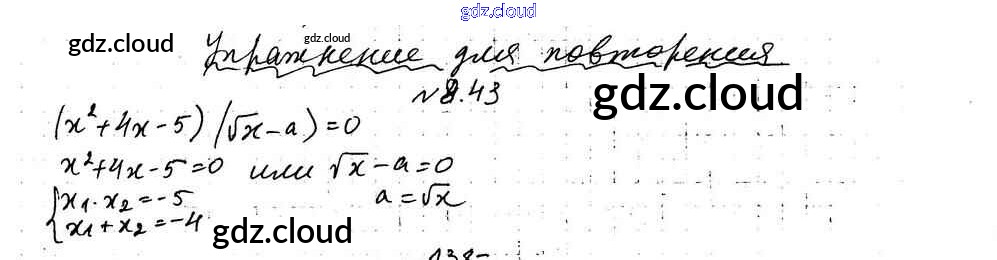 gdz.cloud
gdz.cloud
gdz.cloud
Упражнение для повторения
№8.43
gdz.cloud
(x²+4x-5)(√x-a)=0
x²+4x-5=0 или √x-a=0
{x₁·x₂=-5
x₁+x₂=-4
a=√x
gdz.cloud